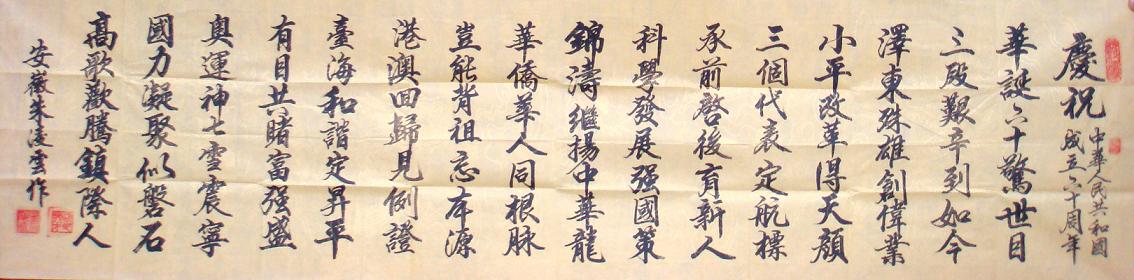 慶祝
中華人民共和國
成立六十周年
華誕六十驚世目
三段艱辛到如今
澤東殊雄創偉業
小平改革得天顏
三個代表定航標
承前啓後育新人
科學發展强國策
錦濤繼揚中華龍
華僑華人同根脉
豈能背祖忘本源
港澳回歸見例證
臺海和諧定昇平
有目共睹富强盛
奥運神七雪震寧
國力凝聚似磐石
高歌歡騰鎮際人
安徽朱凌雲作